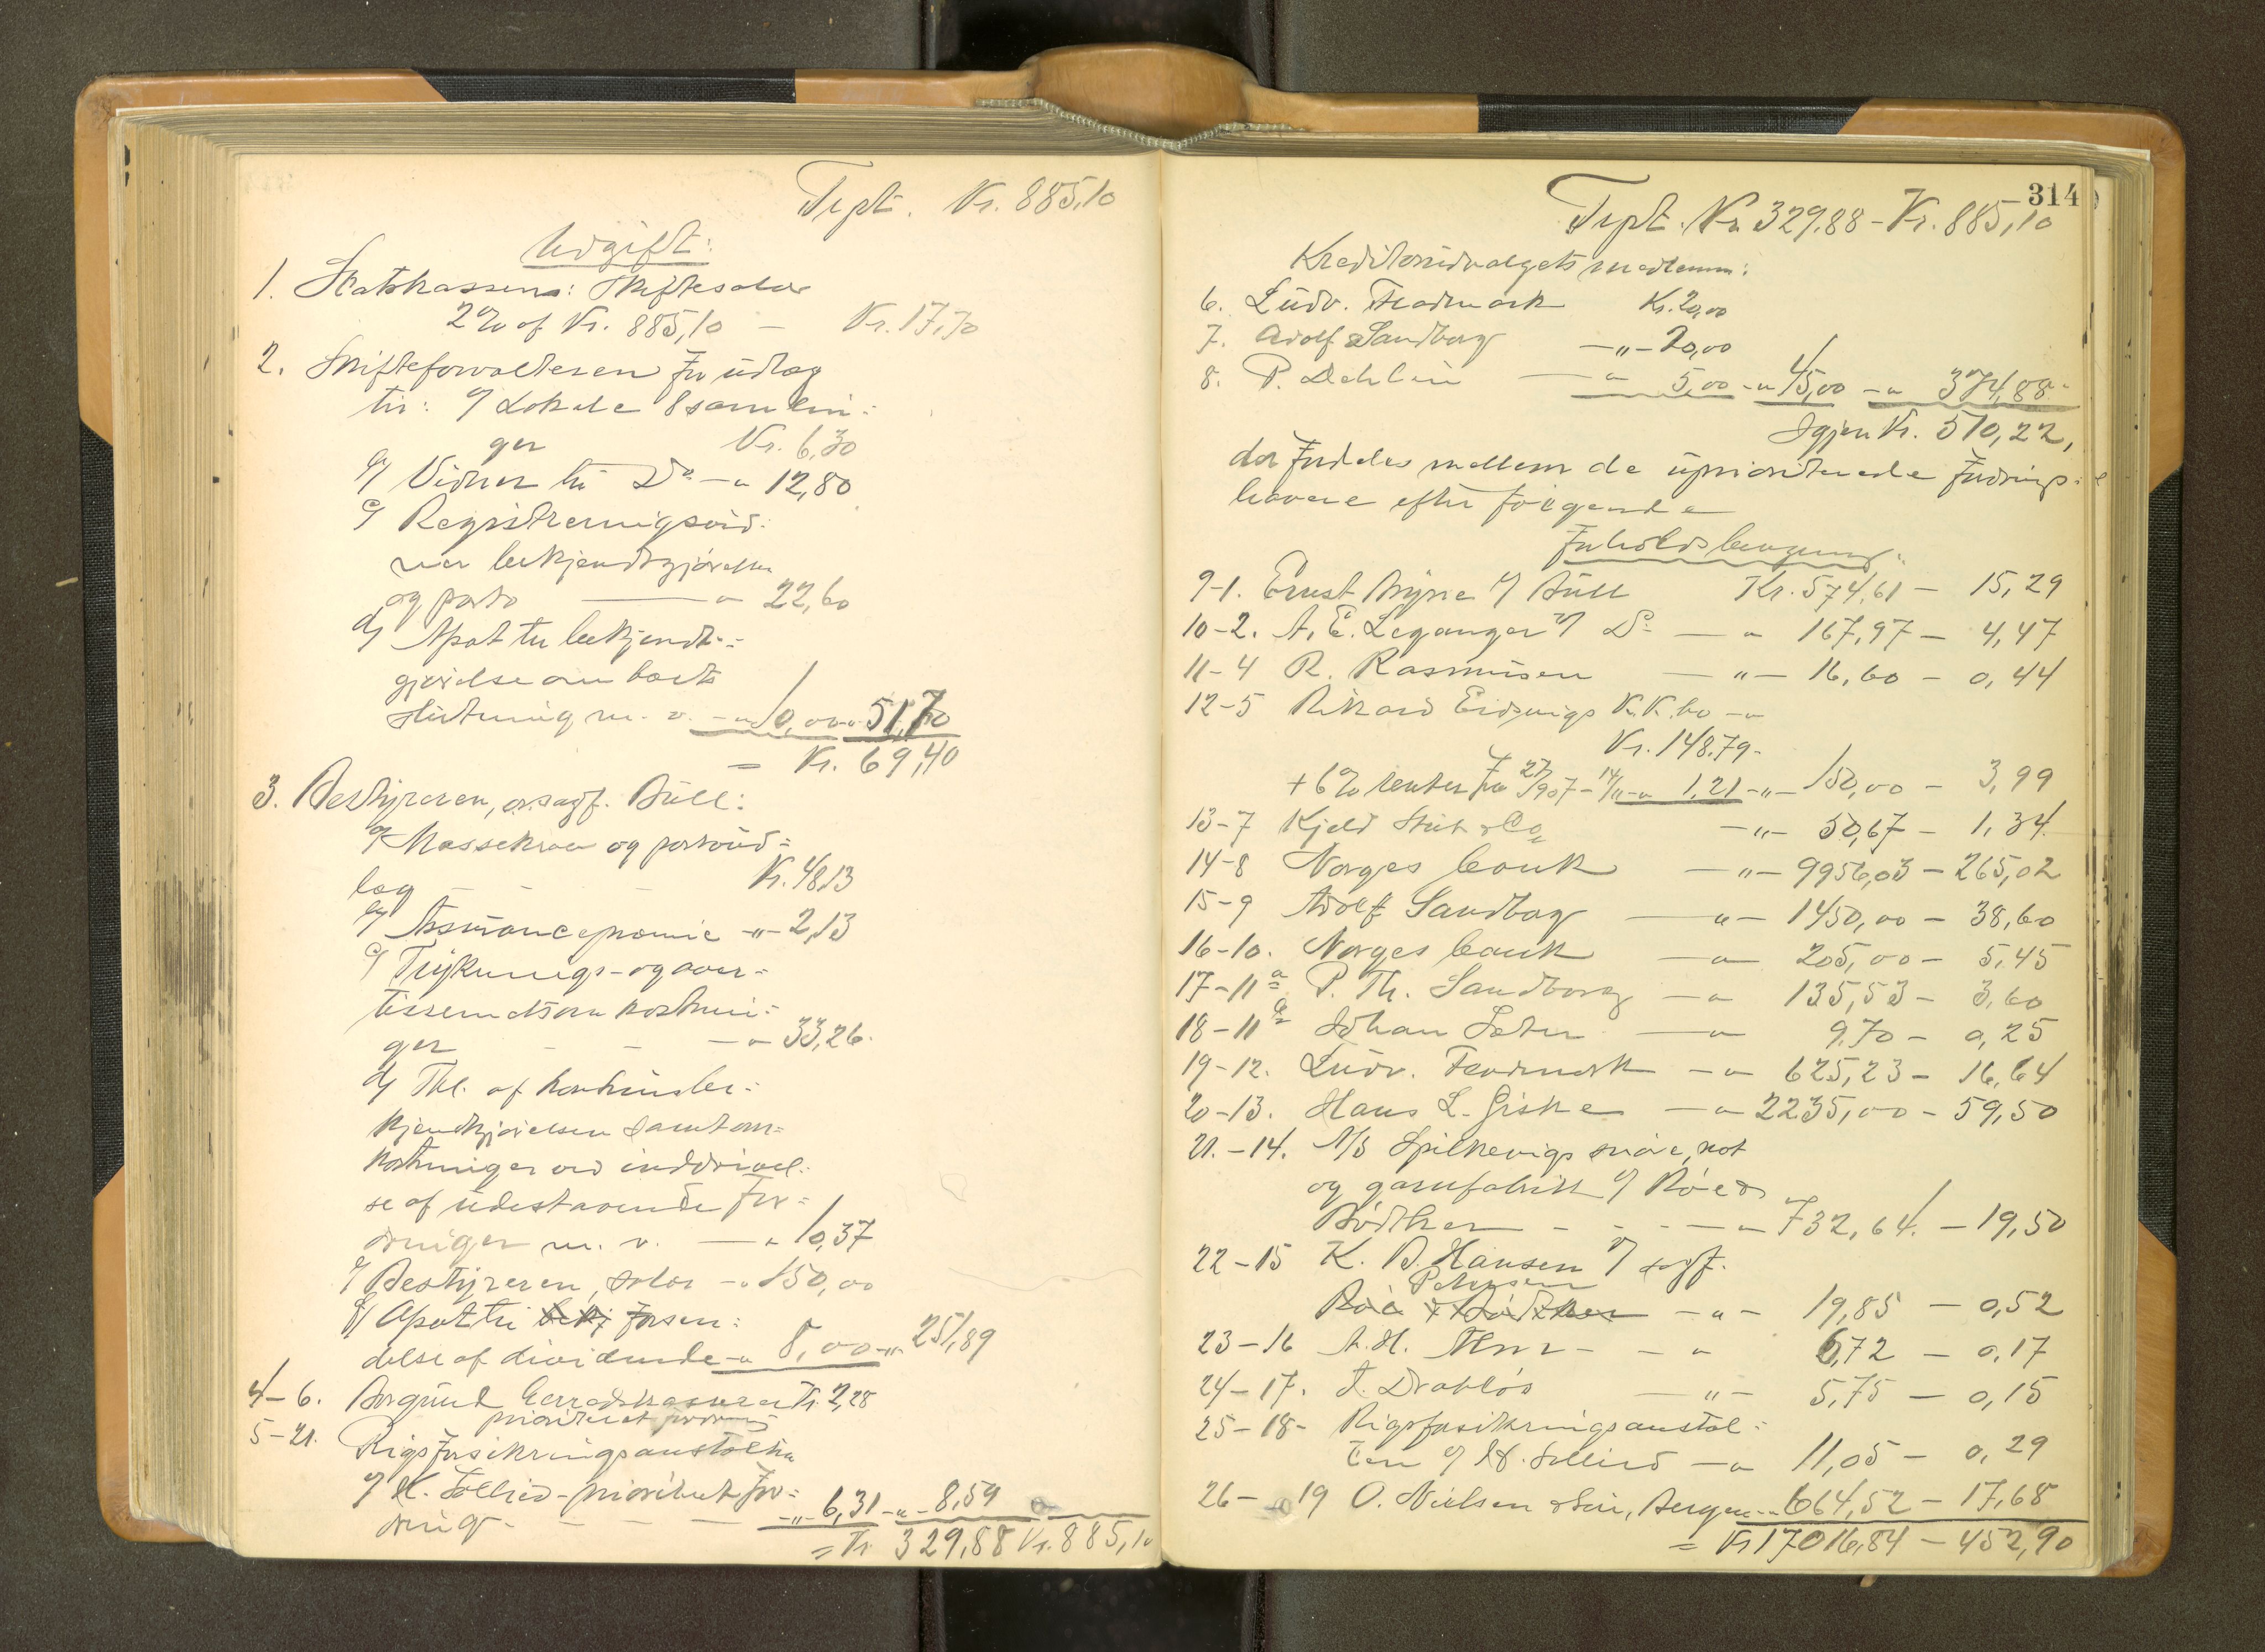 Trpt. Kr. 885,10
Udgift:
1. Statskassen: Skiftesalær
2% af Kr. 885,10 — Kr. 17,70
2. Skifteforvalteren for udlæg
til: a/ Lokale 8 samlin-
ger Kr. 6,30
b/ Vidner til Do — " 12,80
c/ Registreringsvid-
ner bekjendtgjørelse
og porto — " 22,60
d/ Afsat til bekjendt-
gjørelse om boets
slutning m. v. — " 10,00 — " 51,70
= Kr. 69,40
3. Bestyreren, o.r.sagf. Bull:
a/ Massekrav og portoud-
læg - - Kr. 48,13
b/ Assurancepremie — " — 2,13
c/ Tryknings- og aver-
tissementsomkostnin-
ger - - — " — 33,26
d/ Thl. af
kjendtgjørelsen samt om-
kostninger ved inddrivel-
se af udestaaende for-
dringer m. v. — " 10,37
e/ Bestyreren, salær — " 150,00
f/ Afsat til bekj forsen-
delse af dividende — " 8,00 — " — 251,89
4-6. Borgund herredskasserer Kr. 2,28
prioriteret fordring
5-21. Rigsforsikringsanstalten
v/ K. Sollied - prioritert for-
dring - - — " — 6,31 — " — 8,59
= Kr. 329,88 Kr. 885,10
314
Trpt. Kr. 329,88 - Kr. 885,10
Kreditorudvalgets medlemm:
6. Ludv. Fladmark Kr. 20,00
7. Adolf Sandborg — " — 20,00
8. P. Dehlin — " 5,00 — " 45,00 — " 374,88
Igjen Kr. 510,22,
der fordeles mellem de uprioriterede fordrings-
havere efter følgende
Forholdsberegning:
9-1. Ernst Myre v/ Bull Kr. 574,61 — 15,29
10-2. A. E. Leganger v/ Do — " 167,97 — 4,47
11-4 R. Rasmusen — " — 16,60 — 0,44
12-5 Rikard Eidsvigs K.K. bo — "
Kr. 148,79 -
+ 6% renter fra 27/7 907 - 14/11 — " 1,21 — " — 150,00 — 3,99
13-7 Kjeld Stub & Co — " — 50,67 — 1,34
14-8 Norges bank — " — 9956,03 — 265,02
15-9 Adolf Sandborg — " — 1450,00 — 38,60
16-10. Norges bank — " 205,00 — 5,45
17-11a P. Th. Sandborg — " 135,53 — 3,60
18-11b Johan Sæter — " 9,70 — 0,25
19-12. Ludv. Fladmark — " 625,23 — 16,64
20-13. Hans L. Giske — " 2235,00 — 59,50
21.-14. A/S Spilkevigs snøre, not
og garnfabrik v/ Røed &
Bødtker - - - — " 732,64 — 19,50
22-15 K. B. Hansen v/ sagf.
Petersen
Røed & Bødtker — " — 19,85 — 0,52
23-16 A. H. - — " 6,72 — 0,17
24-17. A. Drabløs — " — 5,75 — 0,15
25-18- Rigsforsikringsanstal-
ten v/ K. Sollied — " 11,05 — 0,29
26- 19 O. Nielsen & Søn, Bergen — " 664,52 — 17,68
= Kr 17016,84 — 452,90